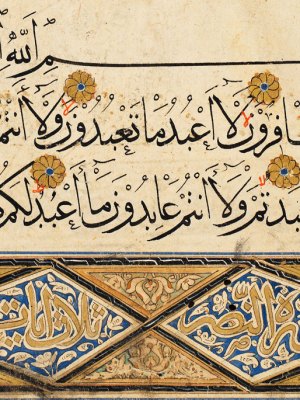 الله
ـافرون لا أعبد ما تعبدون ولا أنتم
ـبدتم ولا أنتم عابدون ما أعبد لكم
ـرة النصر ثلاث آيات